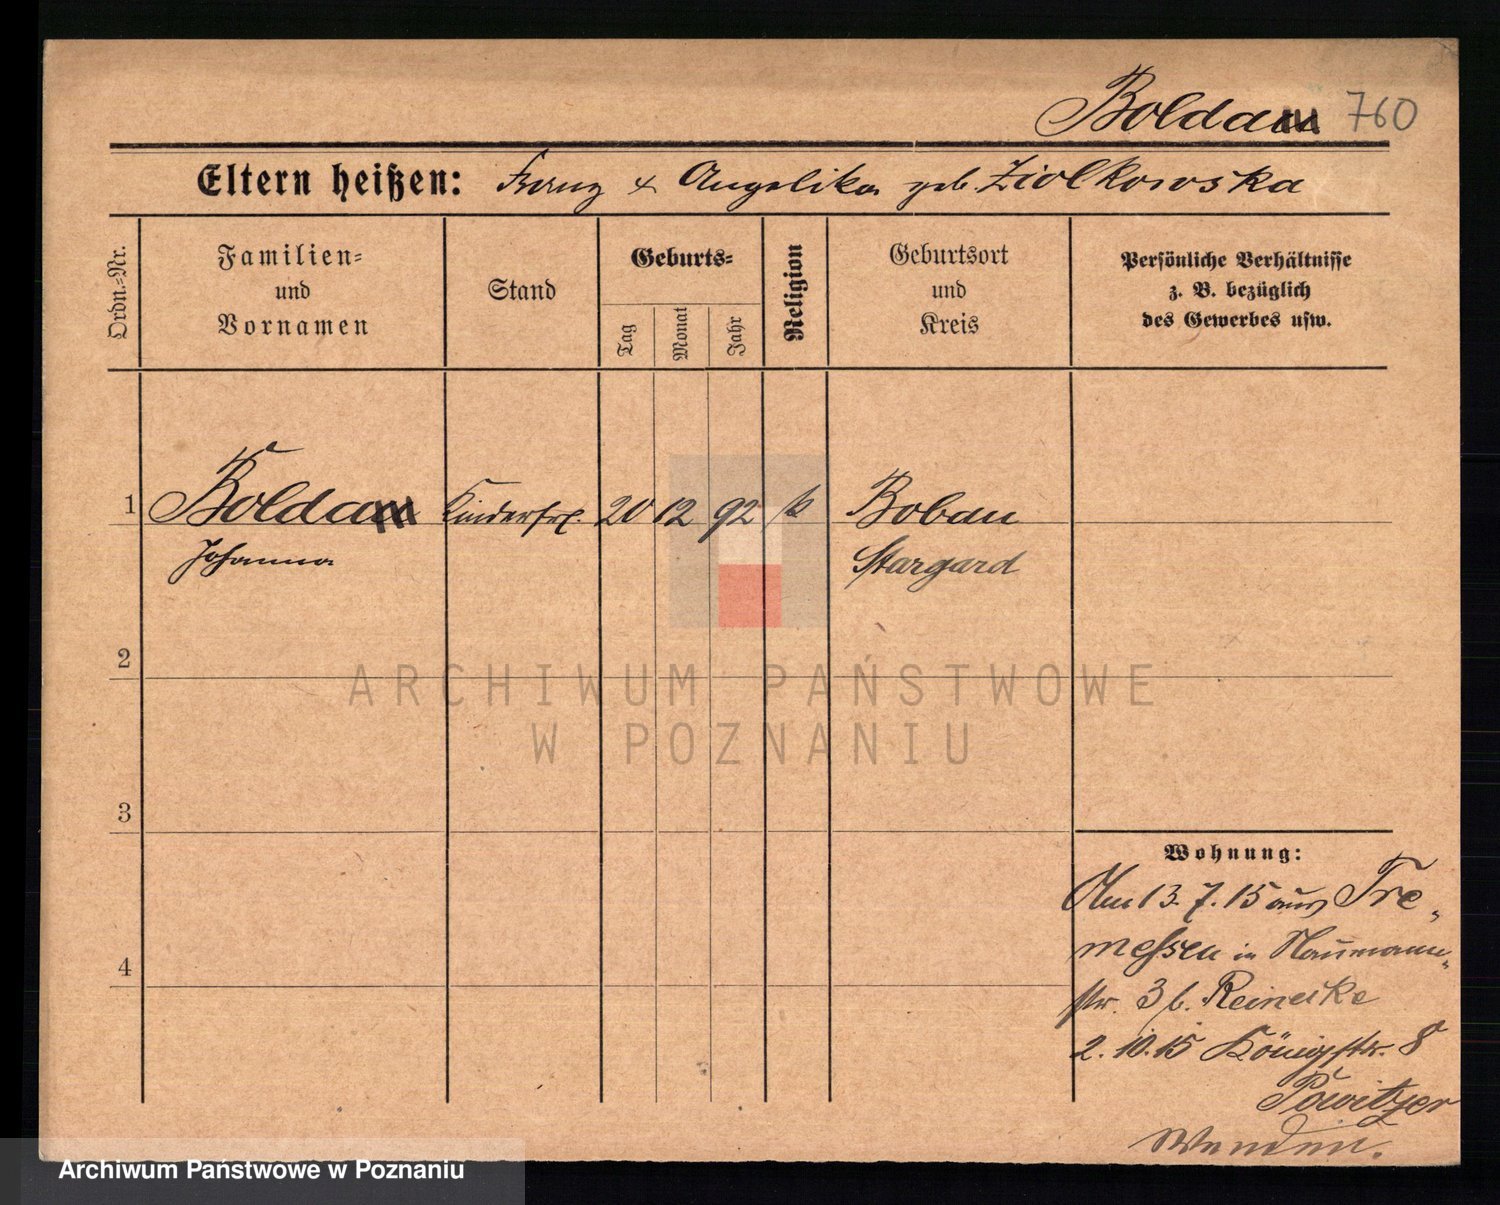 Boldau 760
Eltern heißen: Franz & Angelika geb. Ziolkowska
Ordn.-Nr.
Familien- und Vornamen
Stand
Geburts-
Tag
Monat
Jahr
Religion
Geburtsort und Kreis
Persönliche Verhältnisse
z. B. bezüglich
des Gewerbes usw.
1 Boldau Kinderfrl. 20 12 92 k Bobau
Johanna Stargard
2
3
4
Wohnung:
Am 13. 7. 15 aus Tre-
messen in Naumann-
str. 3 b. Reinecke
2. 10. 15 Königstr. 8
Powitzer
ARCHIWUM PAŃSTWOWE
W POZNANIU
Archiwum Państwowe w Poznaniu